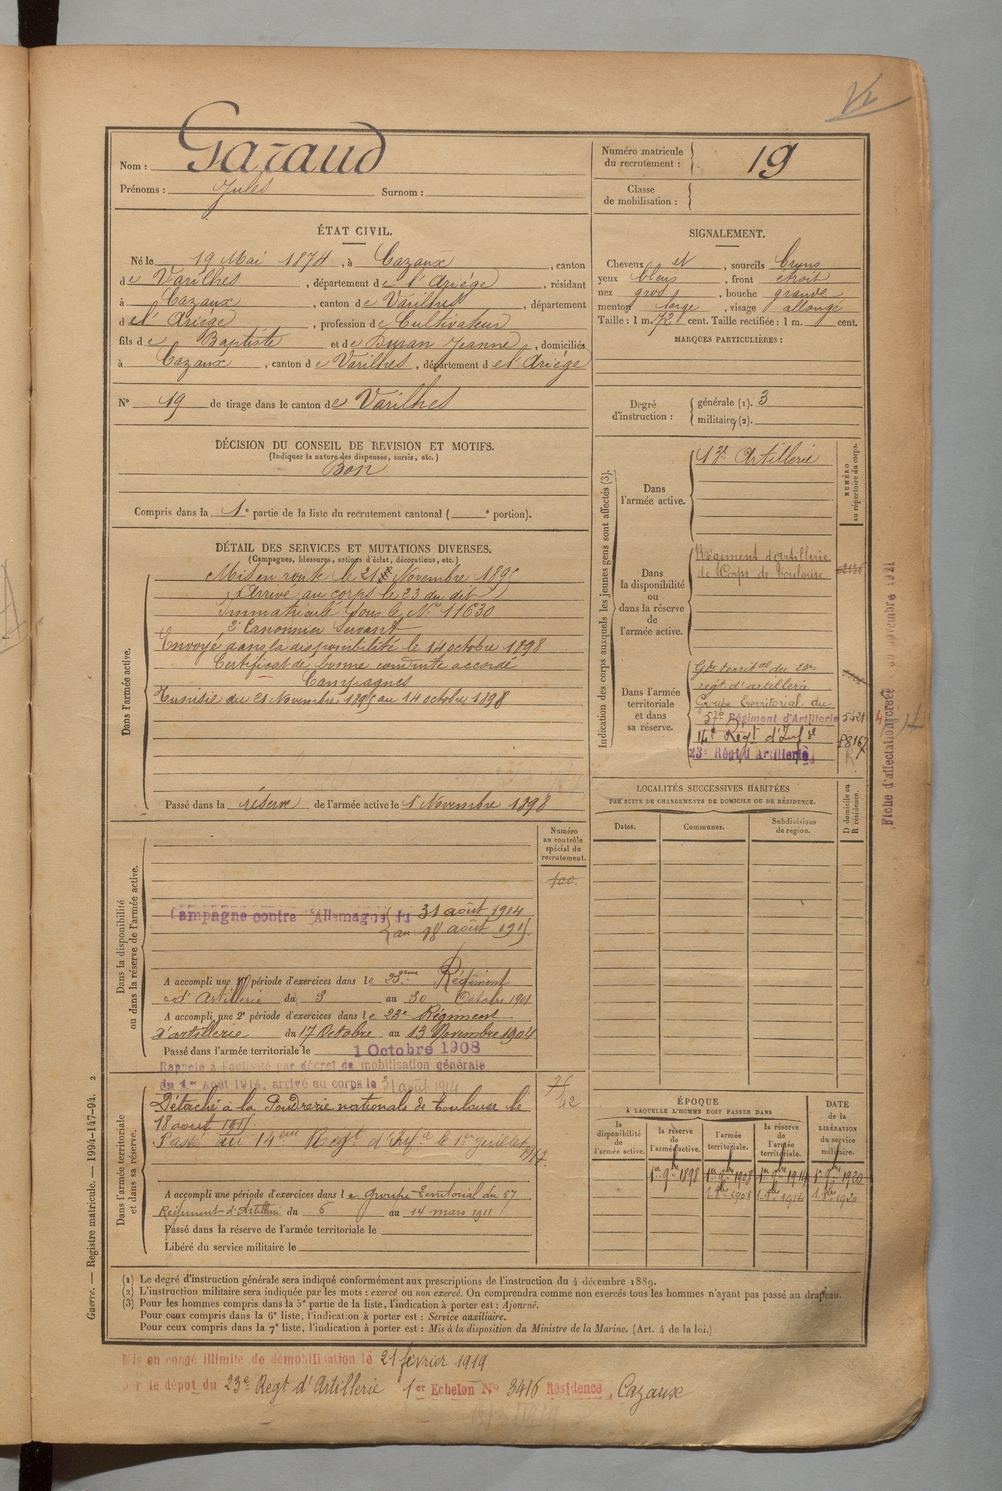 Nom : Garaud
Prénoms : Jules Surnom :
Numéro matricule du recrutement : 19
Classe de mobilisation :
ÉTAT CIVIL.
Né le 19 Mai 1874, à Cazaux, canton
de Varilhes, département de l'Ariège, résidant
à Cazaux, canton de Varilhes, département
de l'Ariège, profession de Cultivateur
fils de Baptiste et de Duran Jeanne, domiciliés
à Cazaux, canton de Varilhes, département de l'Ariège
N° 19 de tirage dans le canton de Varilhes
SIGNALEMENT.
Cheveux et, sourcils bruns
yeux bleus, front étroit
nez gros, bouche grande
menton large, visage allongé
Taille : 1 m. 72 cent. Taille rectifiée : 1 m. cent.
MARQUES PARTICULIÈRES :
Degré d'instruction : générale (1). 3
militaire (2).
DÉCISION DU CONSEIL DE REVISION ET MOTIFS.
(Indiquer la nature des dispenses, sursis, etc.)
Bon
Compris dans la 1e partie de la liste du recrutement cantonal ( e portion).
DÉTAIL DES SERVICES ET MUTATIONS DIVERSES.
(Campagnes, blessures, actions d'éclat, décorations, etc.)
Dans l'armée active.
Mis en route le 21 Novembre 1895
Arrivé au corps le 23 du dit
Immatriculé sous le N° 11630
2e Canonnier Servant
Envoyé dans la disponibilité le 14 octobre 1898
Certificat de bonne conduite accordé
Campagnes
Tunisie du 21 Novembre 1895 au 14 octobre 1898
Passé dans la réserve de l'armée active le 1 Novembre 1898
Indication des corps auxquels les jeunes gens sont affectés (3).
NUMÉRO au répertoire du corps.
Dans l'armée active.
13e Artillerie
Dans la disponibilité ou dans la réserve de l'armée active.
Régiment d'artillerie
de Corps de Toulouse
Dans l'armée territoriale et dans sa réserve.
Gpe territal du 23e
régt d'artillerie
Groupe Territorial du
57e Régiment d'Artillerie 5421
14e Régt d'Infie 88167
23e Régt d'Artillerie R
Fiche d'affectation créée septembre 1921
LOCALITÉS SUCCESSIVES HABITÉES
PAR SUITE DE CHANGEMENTS DE DOMICILE OU DE RÉSIDENCE.
Dates. Communes. Subdivisions de région. D domicile ou R résidence.
Dans la disponibilité ou dans la réserve de l'armée active.
Numéro au contrôle spécial du recrutement.
100
Campagne contre l'Allemagne du 31 août 1914
au 18 août 1915
A accompli une 1e période d'exercices dans le 23eme Régiment
d'Artillerie du 3 au 30 Octobre 1901
A accompli une 2e période d'exercices dans le 23e Régiment
d'artillerie du 17 Octobre au 13 Novembre 1904
Passé dans l'armée territoriale le 1 Octobre 1908
Rappelé à l'activité par décret de mobilisation générale
du 1er Août 1914, arrivé au corps le 31 août 1914
Dans l'armée territoriale et dans sa réserve.
Détaché à la Poudrerie nationale de Toulouse le
18 août 1915
Passé au 14eme Regt d'Infie le 1er Juillet 1917
A accompli une période d'exercices dans le groupe Territorial du 57
Régiment d'Artillerie du 6 au 14 mars 1911
Passé dans la réserve de l'armée territoriale le
Libéré du service militaire le
ÉPOQUE
À LAQUELLE L'HOMME DOIT PASSER DANS
la disponibilité de l'armée active. la réserve de l'armée active. l'armée territoriale. la réserve de l'armée territoriale.
DATE de la LIBÉRATION du service militaire.
1er 9bre 1898 1er 9bre 1908 1er 9bre 1914 1er 9bre 1920
1. 8bre 1908 1. 8bre 1914 1. 8bre 1920
(1) Le degré d'instruction générale sera indiqué conformément aux prescriptions de l'instruction du 4 décembre 1889.
(2) L'instruction militaire sera indiquée par les mots : exercé ou non exercé. On comprendra comme non exercés tous les hommes n'ayant pas passé au drapeau.
(3) Pour les hommes compris dans la 5e partie de la liste, l'indication à porter est : Ajourné.
Pour ceux compris dans la 6e liste, l'indication à porter est : Service auxiliaire.
Pour ceux compris dans la 7e liste, l'indication à porter est : Mis à la disposition du Ministre de la Marine. (Art. 4 de la loi.)
Guerre. — Registre matricule. — 1994-147-94. 2
Mis en congé illimité de démobilisation le 21 février 1919
par le dépot du 23e Regt d'Artillerie 1er Echelon N° 3416 Résidence, Cazaux